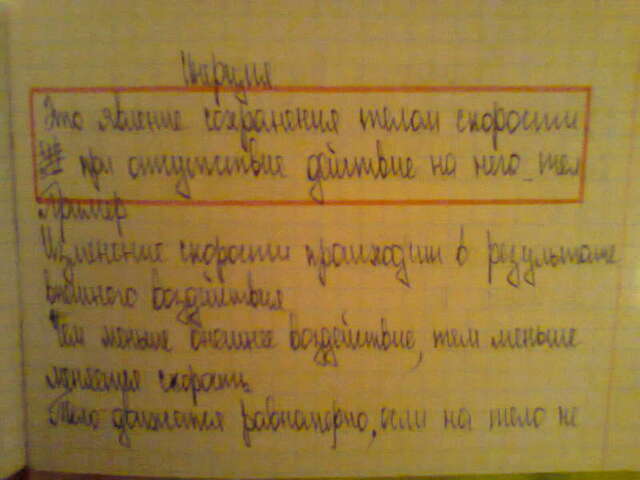 Инерция
Это явление сохранения телом скорости
при отцутствие действие на него тел
Пример
Изменение скорости происходит в результате
внешнего воздействия
Чем меньше внешнее воздействие, тем меньше
меняется скорость
Тело движется равномерно, если на тело не